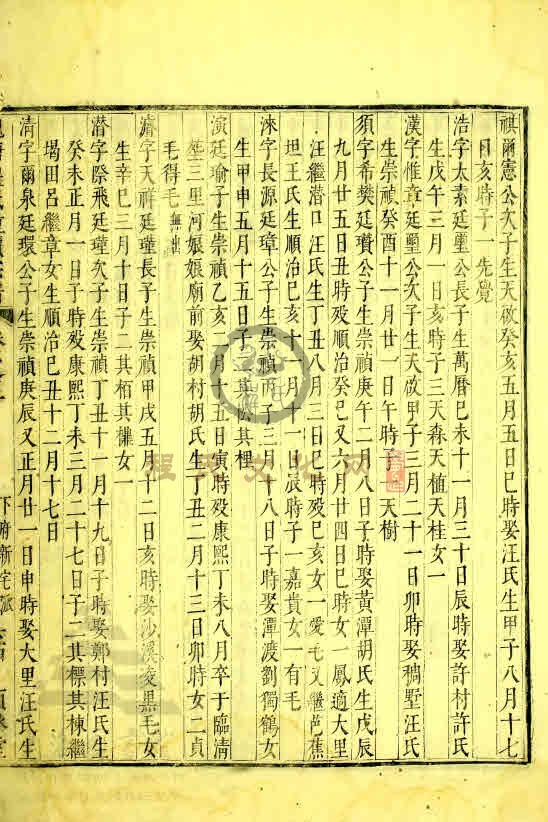 祺爾憲公次子生天啟癸亥五月五日巳時娶汪氏生甲子八月十七
日亥時子一先覺
浩字太素廷璽公長子生萬曆己未十一月三十日辰時娶許村許氏
生戊午三月一日亥時子三天森天植天桂女一
漢字惟章廷璽公次子生天啟甲子三月二十一日卯時娶稠墅汪氏
生崇禎癸酉十一月廿一日午時子一天樹
須字希樊廷瓚公子生崇禎庚午二月八日子時娶黃潭胡氏生戊辰
九月廿五日丑時歿順治癸巳又六月廿四日巳時女一鳳適大里
汪繼潛口汪氏生丁丑八月三日巳時歿己亥女一愛毛又繼芭蕉
坦王氏生順治己亥十一月一日辰時子一嘉貴女一有毛
淶字長源廷璋公子生崇禎丙子三月十八日子時娶潭渡劉獨鶴女
生甲申五月十五日子時子二其 其梩
演廷瑜子生崇禎乙亥 月十五日寅時歿康熙丁未八月卒于臨清
塟三里河娘娘廟前娶胡村胡氏生丁丑二月十三日卯時女二貞
毛得毛無出
濬字天祥廷瑾長子生崇禎甲戌五月十二日亥時娶沙溪凌 毛女
生辛巳三月十日子二其栢其 女一
潛字際飛廷瑾次子生崇禎丁丑十一月十九日子時娶鄭村汪氏生
癸未正月一日子時歿康熙丁未三月二十七日子二其標其棟繼
堨田呂繼章女生順治己丑十二月十七日
清字爾泉廷環公子生崇禎庚辰又正月廿一日申時娶大里汪氏生
下府新宅派
程氏文化网